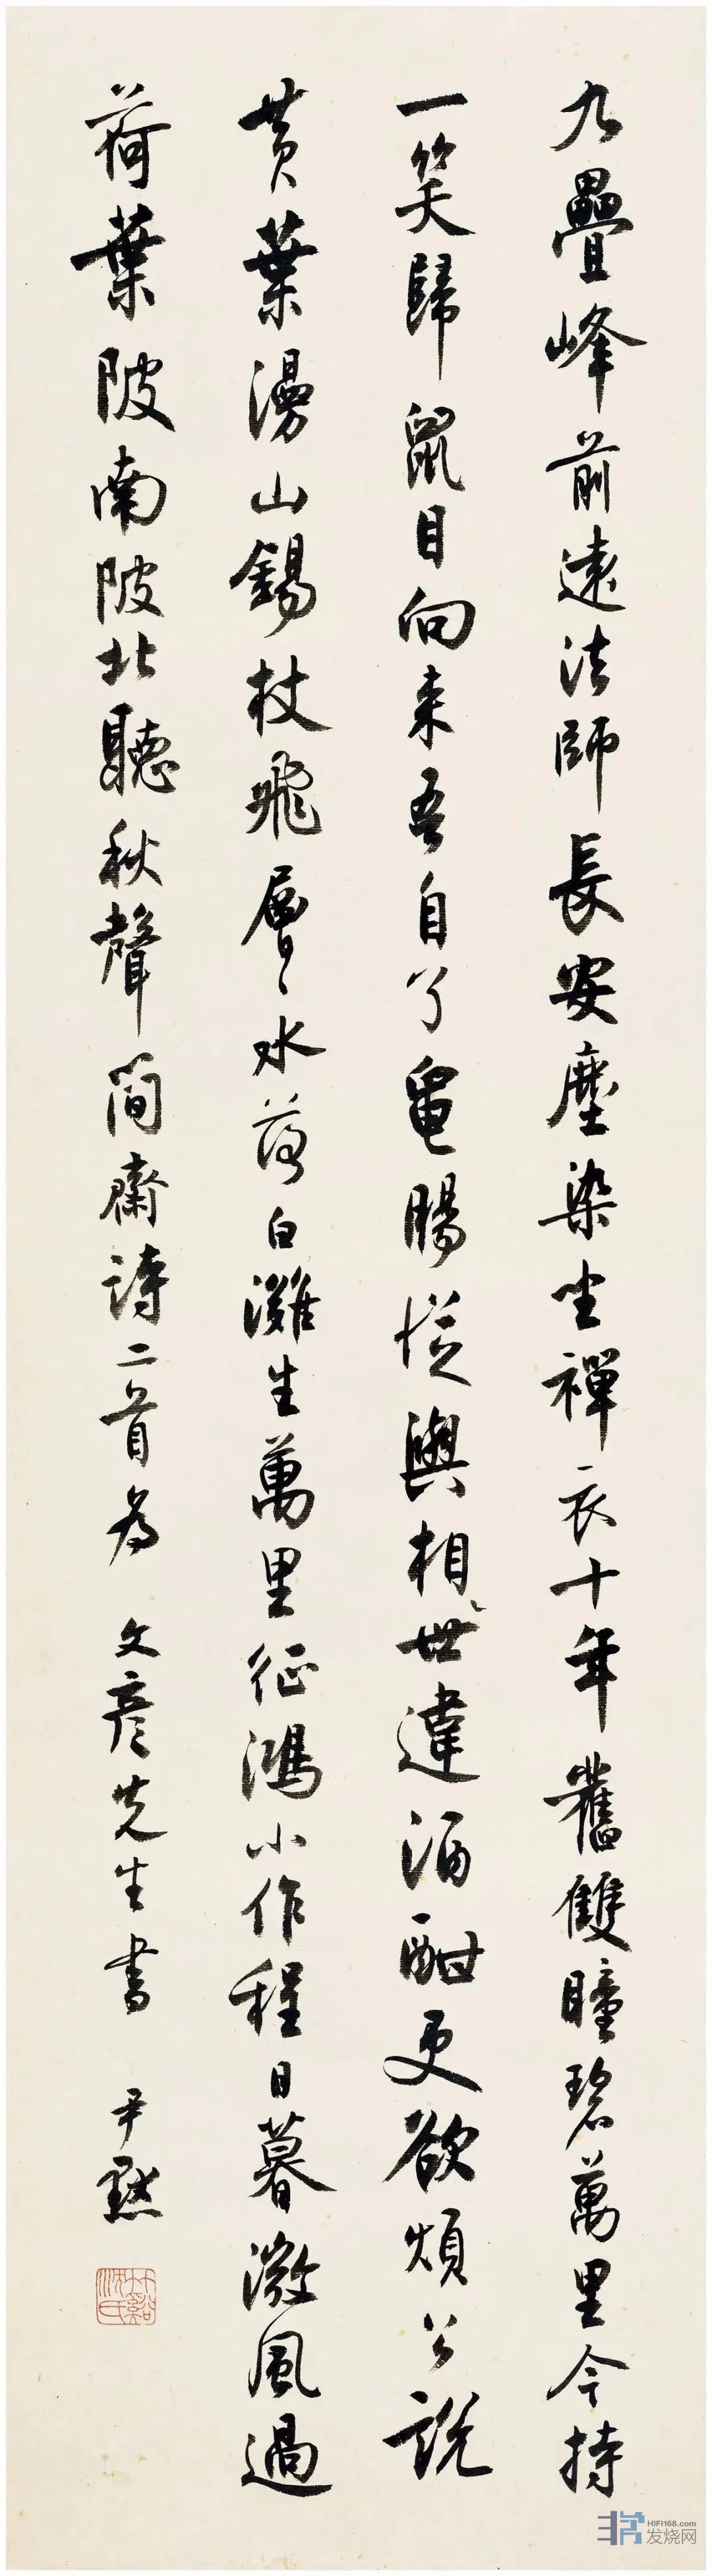 九疊峰前遠法師長安塵染坐禪衣十年舊雙瞳碧萬里今持
一笑歸鼠目向来吾自了龜腸從與世相違酒酣更欲煩公說
黄葉漫山錫杖飛層々水落白灘生萬里征鴻小作程日暮微風過
荷葉陂南陂北聽秋聲簡齋詩二首為 文彦先生書 尹默
竹谿沈氏
HIFI168.com
发烧网